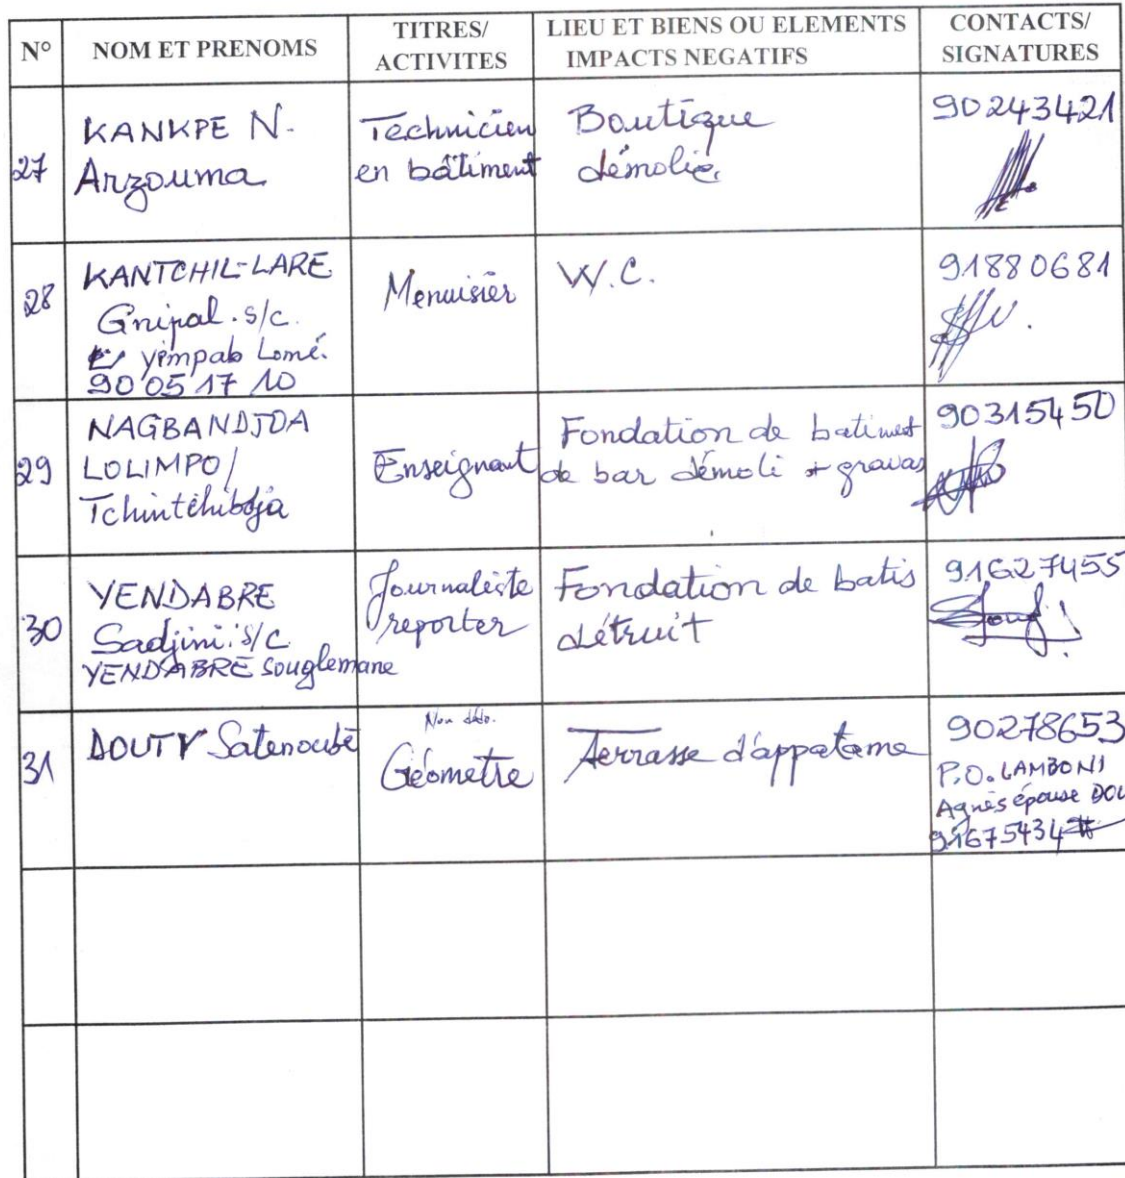 N° NOM ET PRENOMS TITRES/ ACTIVITES LIEU ET BIENS OU ELEMENTS IMPACTS NEGATIFS CONTACTS/ SIGNATURES
27
KANKPE N.
Arzouma
Technicien
en bâtiment
Boutique
démolie
90243421
28
KANTCHIL-LARE
Gnipal. s/c.
yimpab Lomé.
90 05 17 10
Menuisier
W.C.
91880681
29
NAGBANDJOA
LOLIMPO/
Tchintchibdja
Enseignant
Fondation de batiment
de bar démoli + gravas
90315450
30
YENDABRE
Sadjini s/c
YENDABRE Souglemane
Journaliste
reporter
Fondation de batis
détruit
91627455
31
DOUTY Satenoubé
Géometre
Terrasse d'appatame
90278653
P.O. LAMBONI
Agnès épouse DOU
91675434